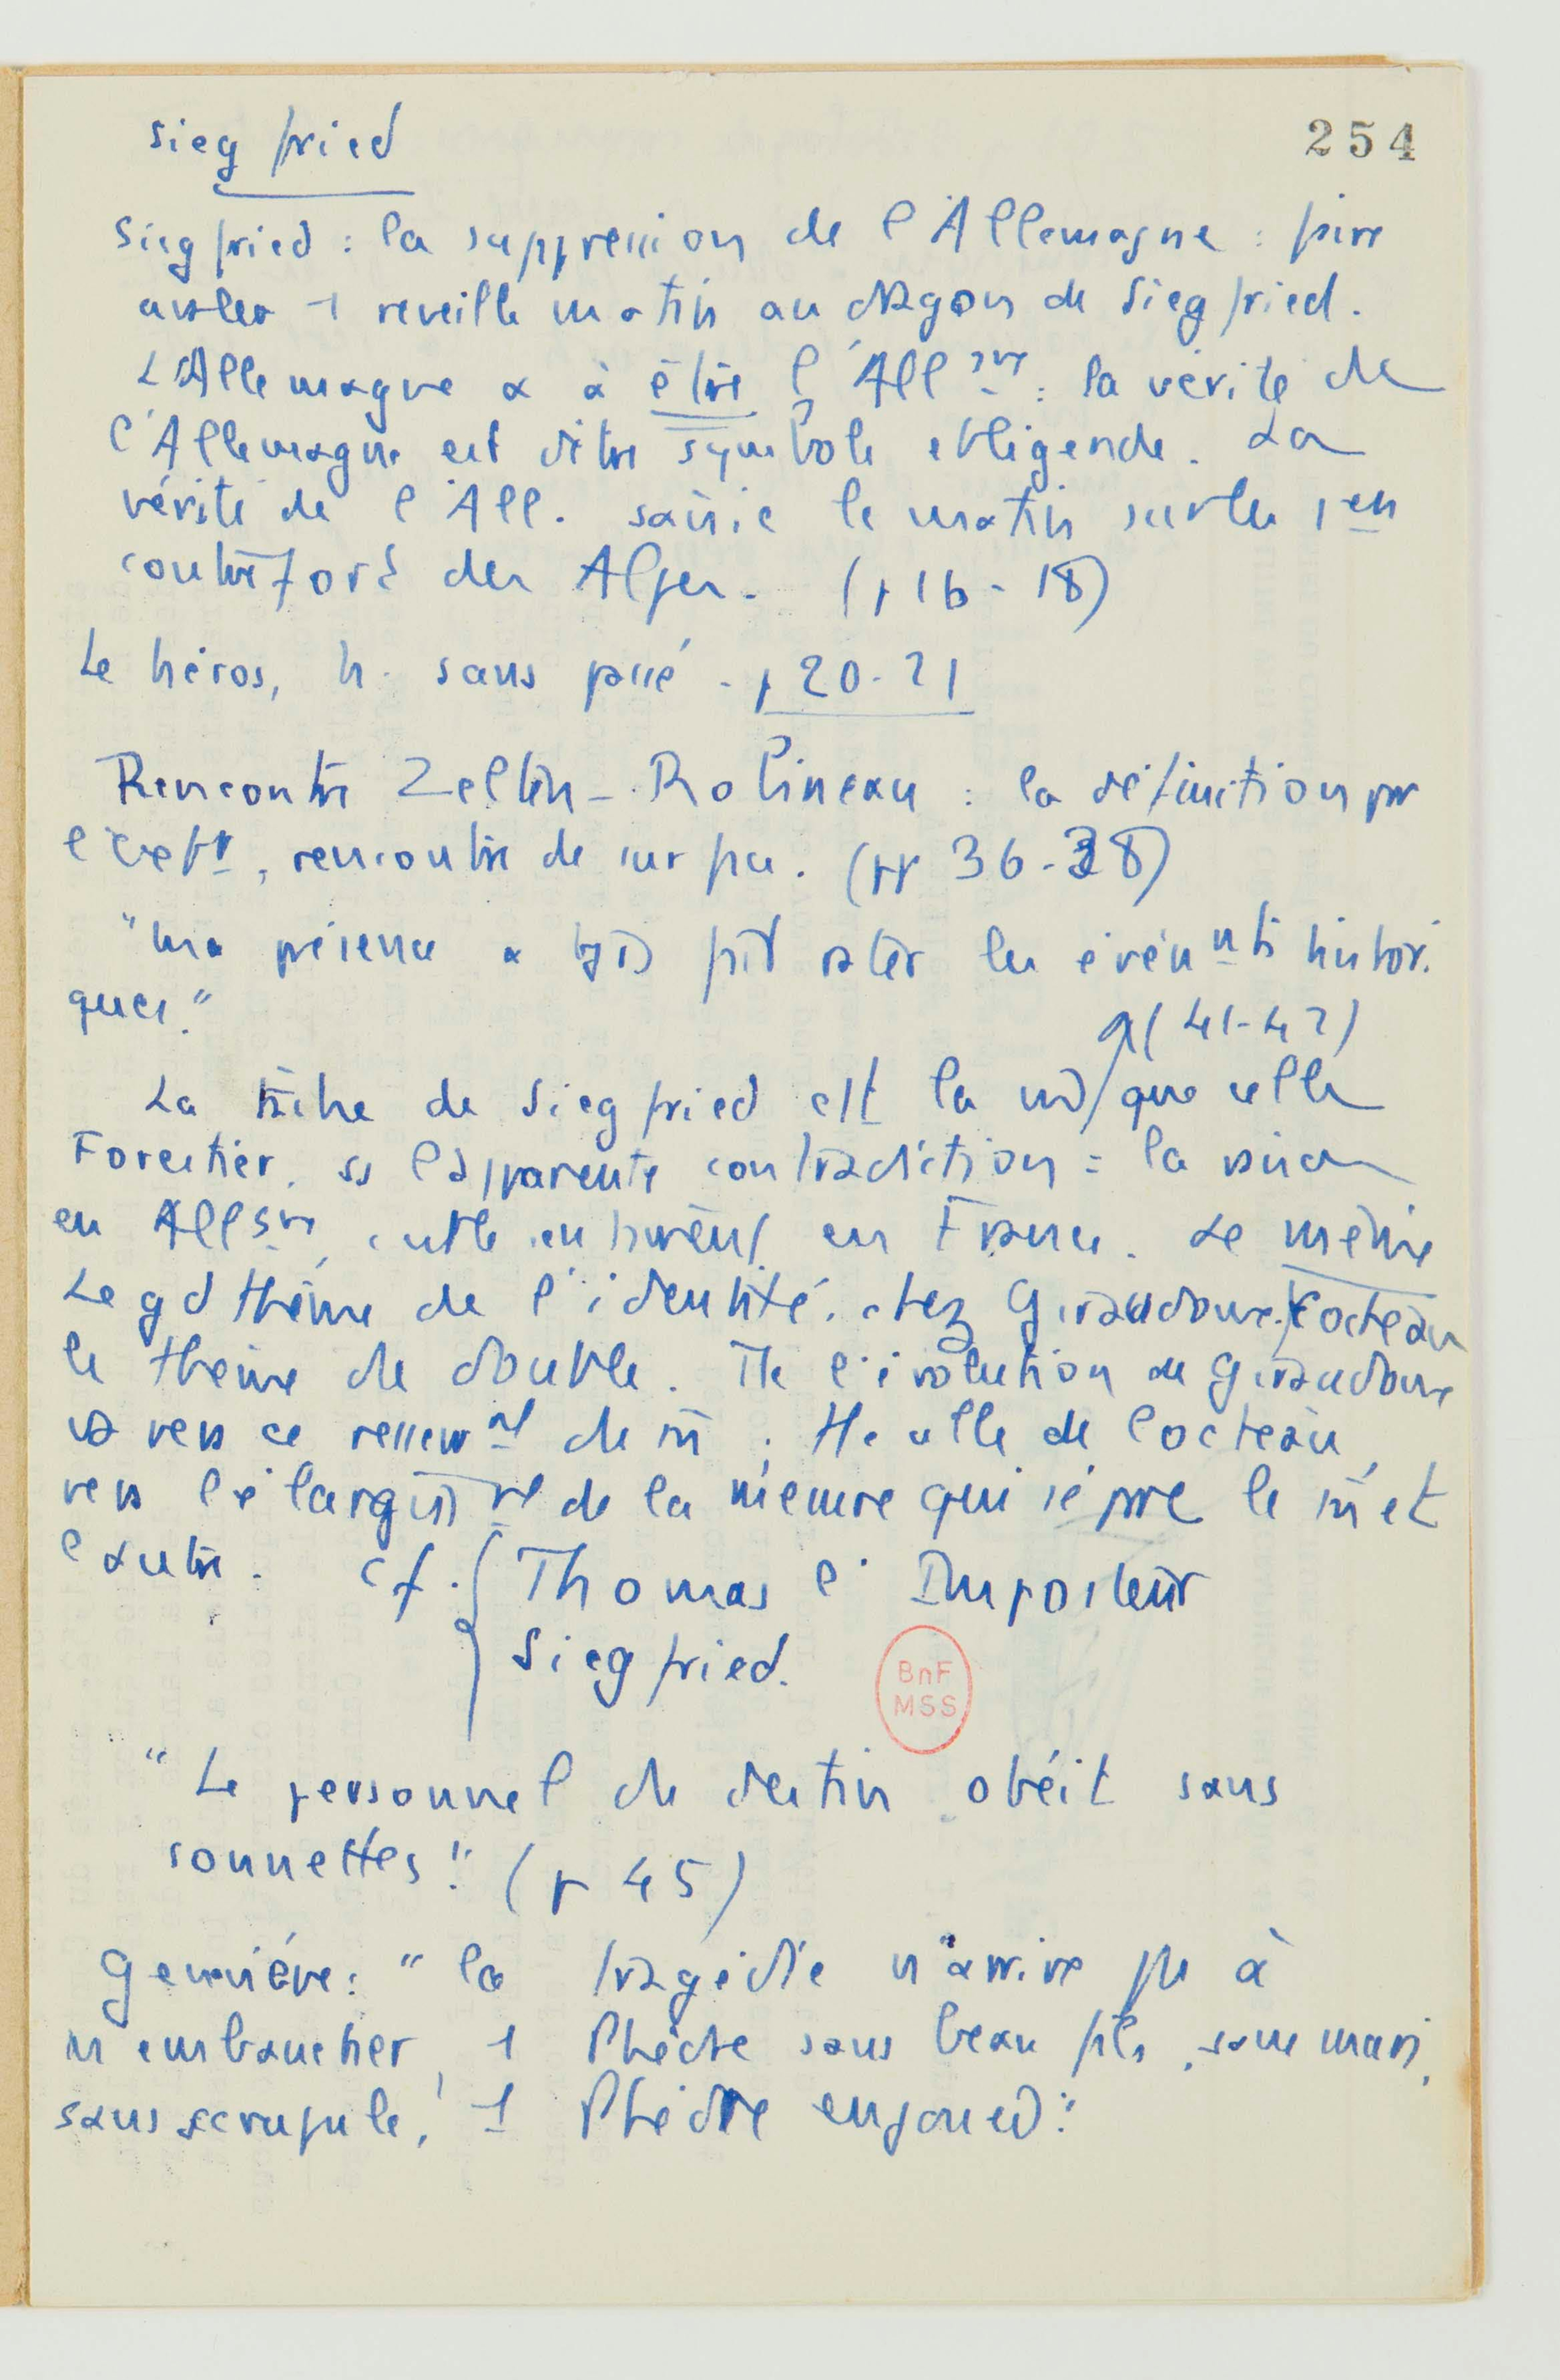 Siegfried
254
Siegfried : la suppression de l'Allemagne : faire
avaler 1 reveille matin au dragon de Siegfried.
L'Allemagne a à être l'Allgne : la vérité de
l'Allemagne est d'être symbole et légende. La
vérité de l'All. saisie le matin sur les 1ers
contreforts des Alpes. (p 16-18)
Le héros, h. sans passé. p 20-21
Rencontre Zelten-Robineau : la définition par
, rencontre de surface. (pp 36-38)
"ma présence a tjs fait rater les événnts histori
ques."
(41-42)
La tâche de Siegfried est la m que celle
Forestier. ss l'apparente contradiction :
en Allgne, en France. Le même
Le gd thème de l'identité. chez Giraudoux. Cocteau
le thème du double. Tte l'évolution de Giraudoux
va vers ce resserrnt du m ; tte celle de Cocteau,
vers l'élargissnt de la mesure qui sépare le m et
l'autre. cf. Thomas l'Imposteur
Siegfried.
BnF
MSS
"Le personnel du destin obéit sans
sonnettes" (p 45)
Geneviève : "la tragédie n'arrive pas à
m'embaucher, 1 Phèdre sans beau fils, sans mari,
sans scrupule, 1 Phèdre enjouée"